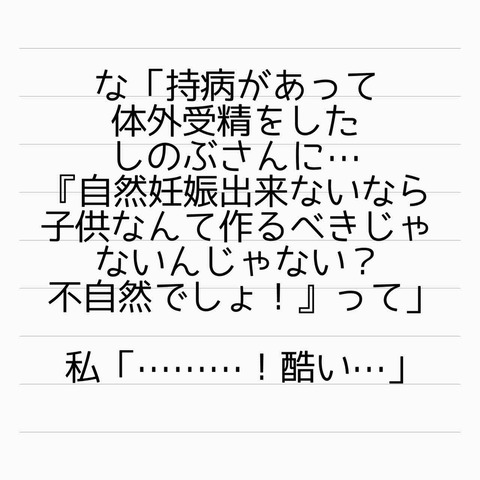 な「持病があって
体外受精をした
しのぶさんに…
『自然妊娠出来ないなら
子供なんて作るべきじゃ
ないんじゃない？
不自然でしょ！』って」
私「………！酷い…」